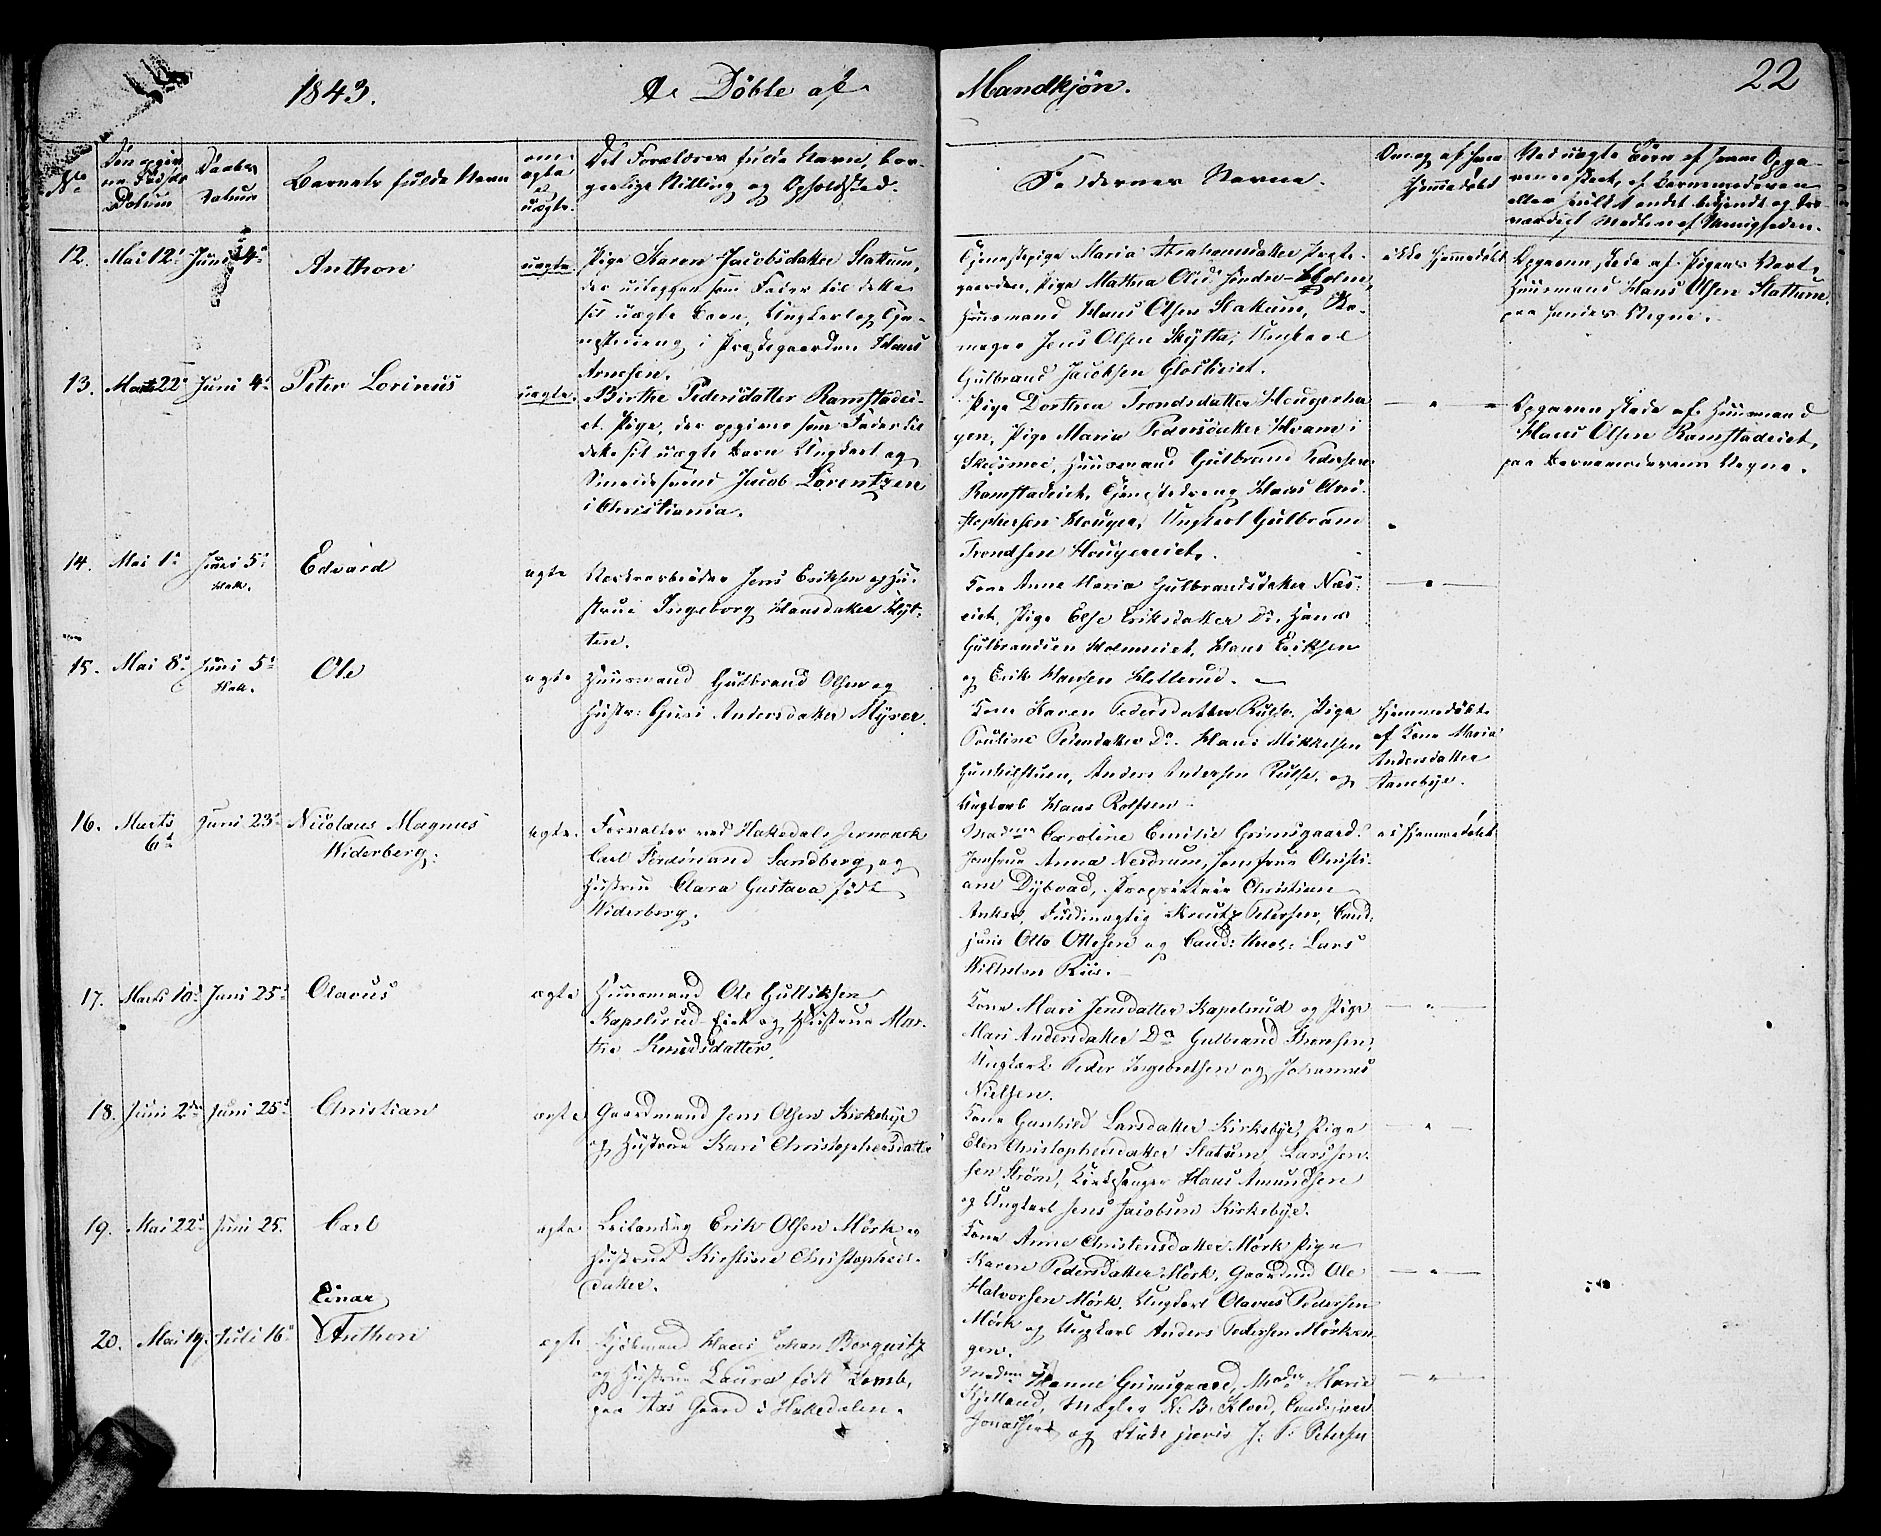 1843. A. Döbte af Mandkjøn. 22
No
Den opgivne Fødsels Datum
Daabens Datum
Barnets fulde Navn
om ægte el. uægte.
Det Forældres fulde Navn, borgerlige Stilling og Opholdssted.
Faddernes Navne.
Om og af hvem Hjemmedøbt
12. Mai 12. Juni 4. Anthon
uægte
Pige Karen Jacobsdatter Slattum,
der udlægger som Fader til dette
sit uægte Barn, Ungkarl og Tje-
nestedreng i Præstegaarden Hans
Arnesen.
Tjenestepige Maria Abrahamsdatter Præste-
gaarden, Pige Mathea Olsd. Søndre-Holm,
Huusmand Hans Olsen Slattum, Sko-
mager Jens Olsen Skytta, Ungkarl
Gulbrand Jacobsen Gloslieiet.
ikke Hjemmedøbt
Opgaven skede af Pigens Vært,
Huusmand Hans Olsen Slattum
paa hendes Vegne.
13. Marts 22. Juni 4. Peter Lorinus
uægte.
Birthe Pedersdatter Ramstadei-
et. Pige, der opgiver som Fader til
dette sit uægte Barn Ungkarl og
Smedesvend Jacob Lorentzen
i Christiania.
Pige Dorthea Trondsdatter Hougerha-
gen, Pige Maria Pedersdatter Hvam i
Skedsmoe, Huusmand Gulbrand Pedersen
Ramstadeiet, Tjenestedreng Hans Chri-
stophersen Houger, Ungkarl Gulbrand
Trondsen Hougereiet.
— " —
Opgaven skede af Huusmand
Hans Olsen Ramstadeiet,
paa Barnemoderens Vegne.
14. Mai 1. Juni 5. Edvard
ægte
Værksarbeider Jens Eriksen og Hu-
strue Ingeborg Hansdatter Skyt-
ten.
Kone Anne Maria Gulbrandsdatter Næs-
eiet, Pige Else Eriksdatter Do, Hans
Gulbrandsen Holmeiet, Hans Eriksen
og Erik Hansen Hellerud. —
— " —
15. Mai 8. Juni 5. Ole
ægte
Huusmand Gulbrand Olsen og
Hustr: Guri Andersdatter Myrer.
Kone Karen Pedersdatter Rulse. Pige
Pouline Pedersdatter Do. Hans Mikkelsen
Gunhilstuen, Anders Andersen Rulse, og
Ungkarl Hans Rolfsen
Hjemmedøbt
af Kone Maria
Andersdatter
Aanebye.
16. Marts 6t Juni 23. Nicolaus Magnus
Widerberg.
ægte.
Forvalter ved Hakedals Jernværk
Carl Ferdinand Sandberg og
Hustrue Clara Gustava født
Widerberg.
Madme Caroline Emilie Grimsgaard.
Jomfrue Anna Nesdrum, Jomfrue Christi-
ane Dybvad, Proprietair Christian
Anker, Fuldmægtig Kreutz Petersen, Cand:
juris Otto Ottesen og Cand: theol: Lars
Wilhelm Riis.
ei Hjemmedøbt
17. Marts 10. Juni 25. Olavus
ægte
Huusmand Ole Gulliksen
Kapelsrud-Eiet og Hustrue Mar-
the Knudsdatter.
Kone Mari Jensdatter Kapelsrud og Pige
Mari Andersdatter Do Gulbrand Thoresen,
Ungkarl Peder Ingebretsen og Johannes
Nielsen.
— " —
18. Juni 2den Juni 25. Christian
ægte
Gaardmand Jens Olsen Kirkebye
og Hustrue Kari Christophersdatter
Kone Gunhild Larsdatter Kirkebye, Pige
Elen Christophersdatter Slatum, Lars
sen Strøm, Kirkesanger Hans Amundsen
og Ungkarl Jens Jacobsen Kirkebye.
— " —
19. Mai 22. Juni 25. Carl
ægte
Leilending Erik Olsen Mörk og
Hustrue Kirstine Christophers-
datter.
Kone Anne Christensdatter Mörk Pige
Karen Pedersdatter Mörk, Gaardmd Ole
Halvorsen Mörk. Ungkarl Olavus Pedersen
Mörk og Ungkarl Anders Pedersen Mörken-
gen.
— " —
20. Mai 19. Juli 16. Einar
Anthon
ægte
Hans Johan Borgnitz
og Hustrue Laura født Lomb,
paa Aas Gaard i Hakedalen.
Madme Hanne Grimsgaard, Madme Marie
Kjelland, N. B. Cand. juris
Jonassen og Stud: juris J. P. Petersen
— " —